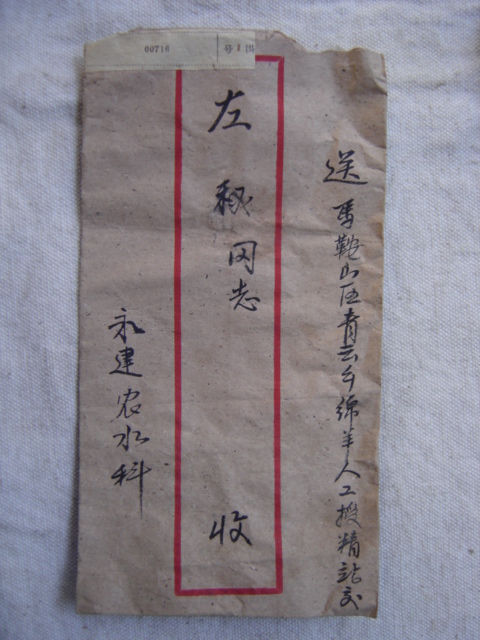 00716
号1国
送马鞍山区青云乡绵羊人工授精站交
左秘同志
收
永建农水科